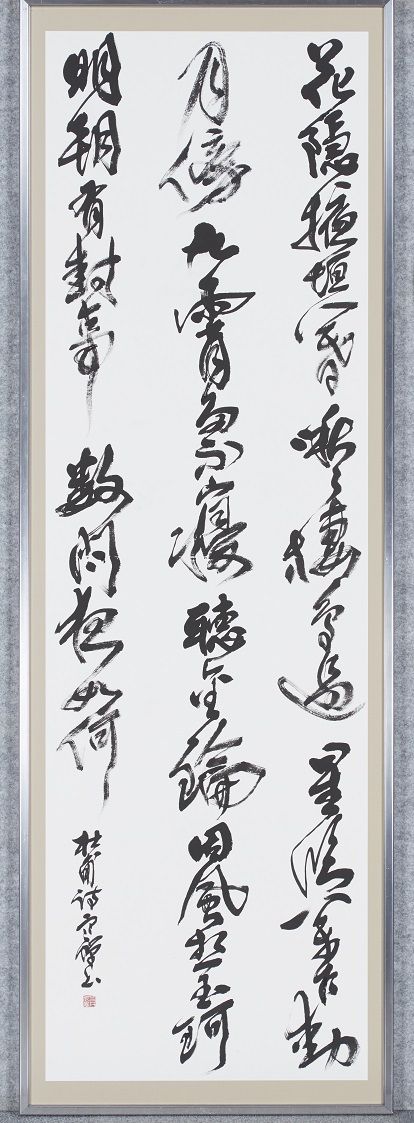 花隠掖垣暮啾々棲鳥過星臨萬戸動
月傍九霄多不寝聴金鑰因風想玉珂
明朝有封事数問夜如何
杜甫詩 書